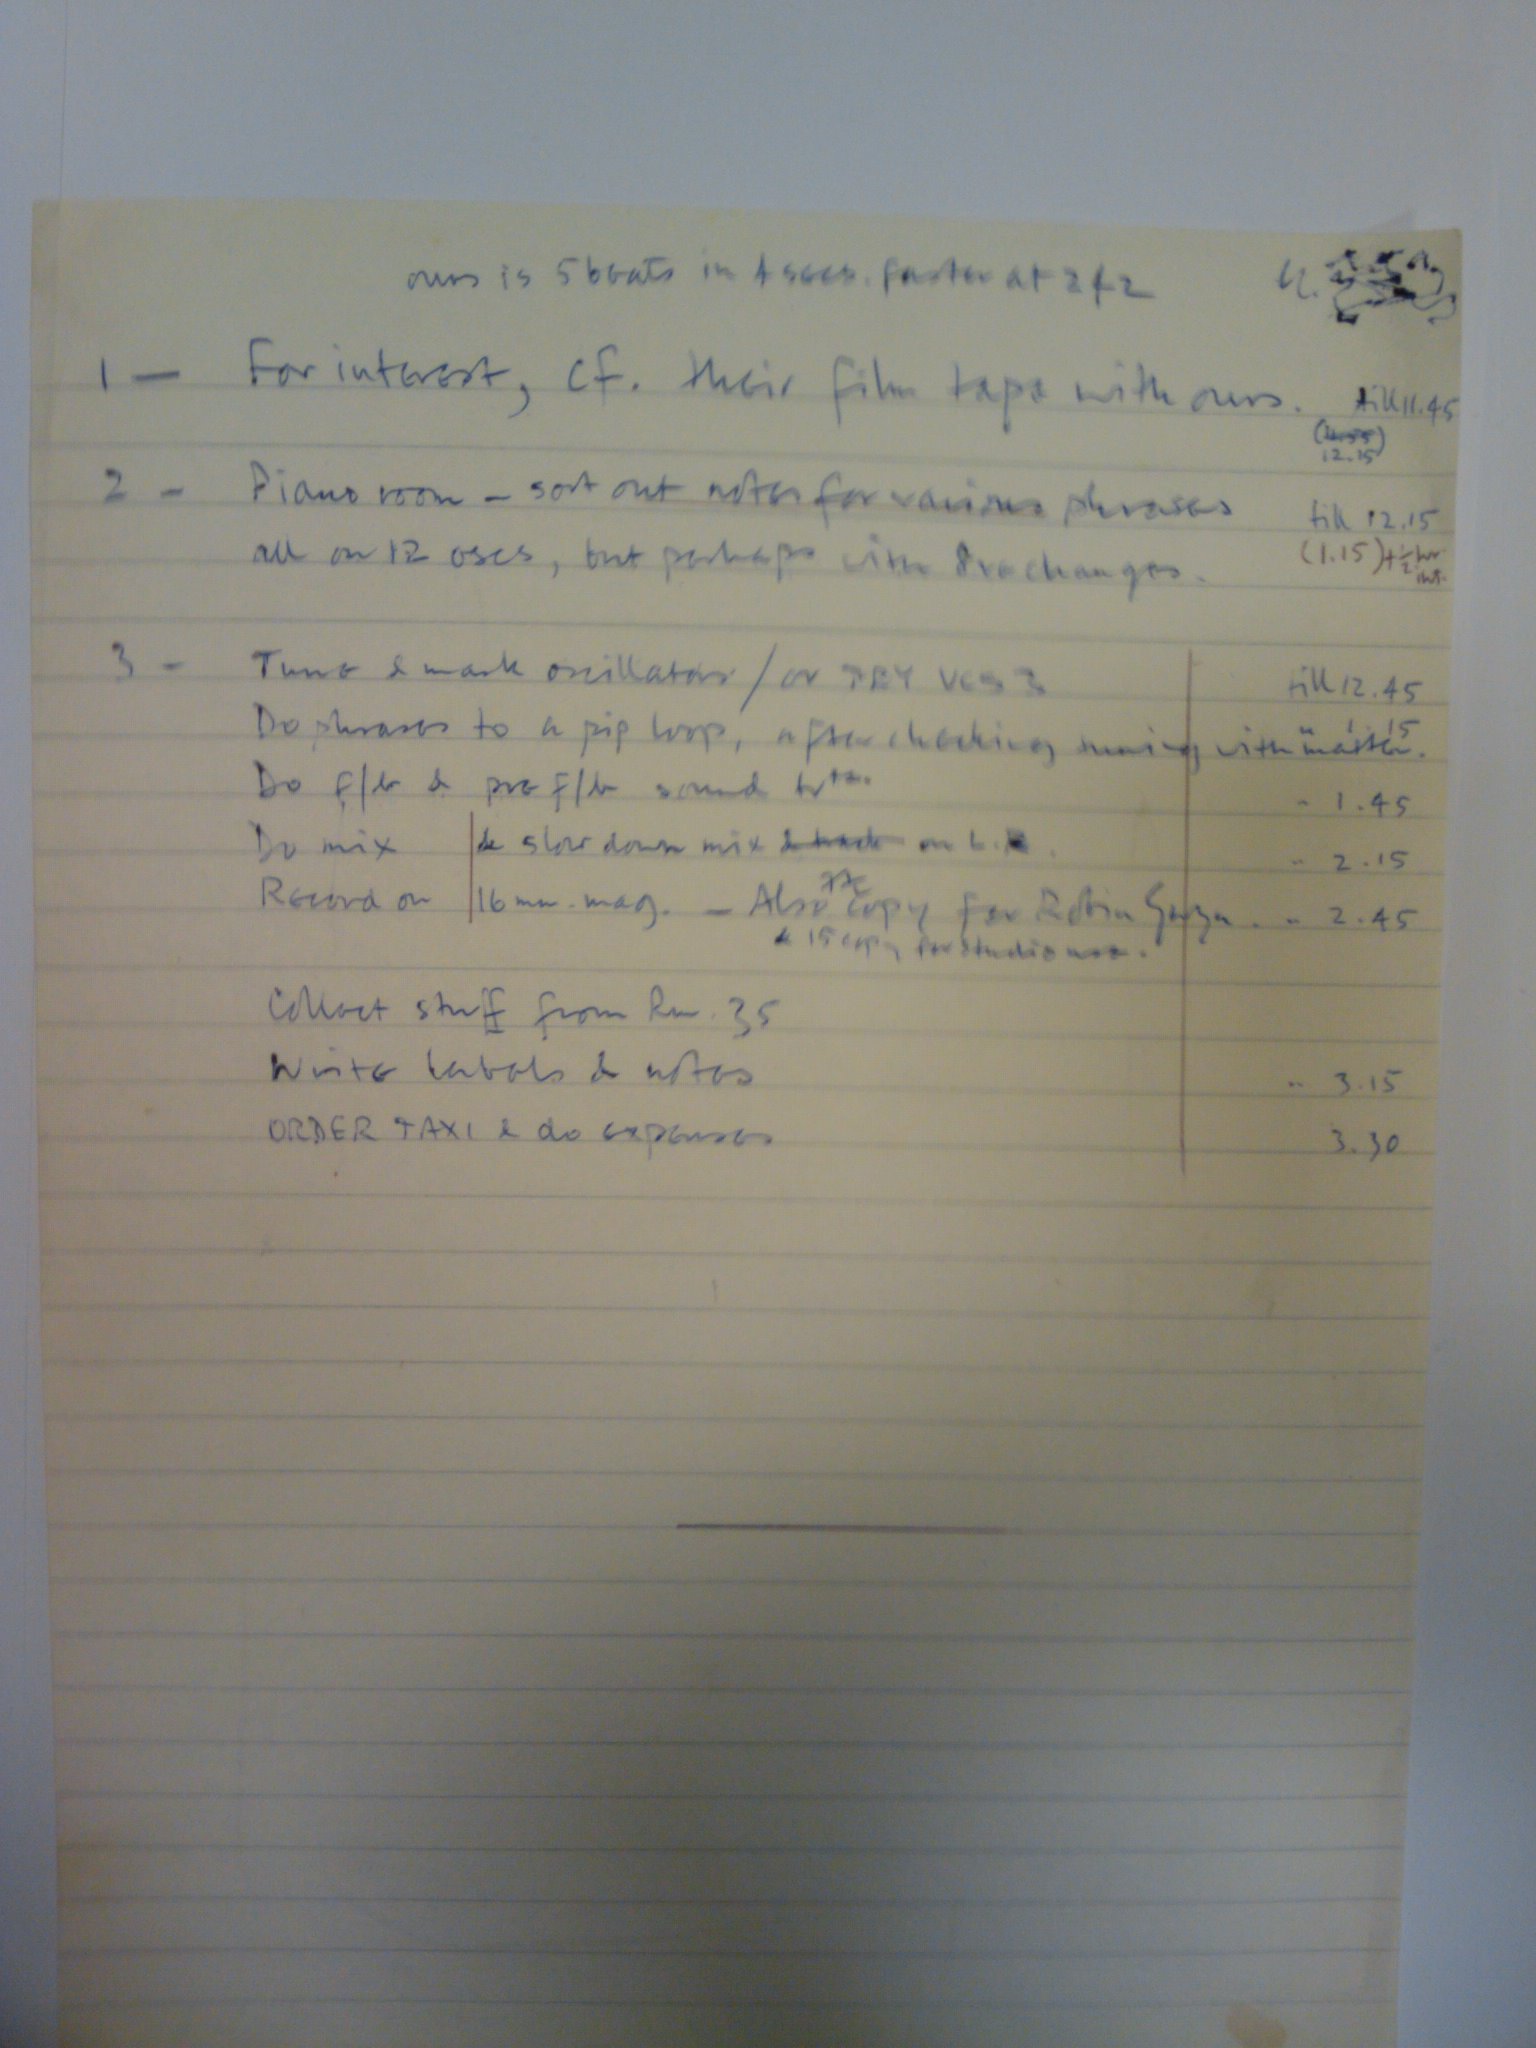 ours is 5 beats in 4 secs. faster at 2 f 2
1 — For interest, cf. their film tape with ours. till 11.45
12.15
2 - Piano room - sort out notes for various phrases till 12.15
all on 12 oscs, but perhaps with 8ve changes. (1.15) + ½ hr
3 - Tune & mark oscillators / or TRY VCS 3 till 12.45
Do phrases to a pip loop, after checking tuning with master. " 1.15
Do f/b & pre f/b sound " 1.45
Do mix & slow down mix & track on " 2.15
Record on 16 mm. mag. - Also 7½ copy for Robin " 2.45
& 15 copy for studio use.
Collect stuff from Rm. 35
Write labels & notes " 3.15
ORDER TAXI & do expenses 3.30